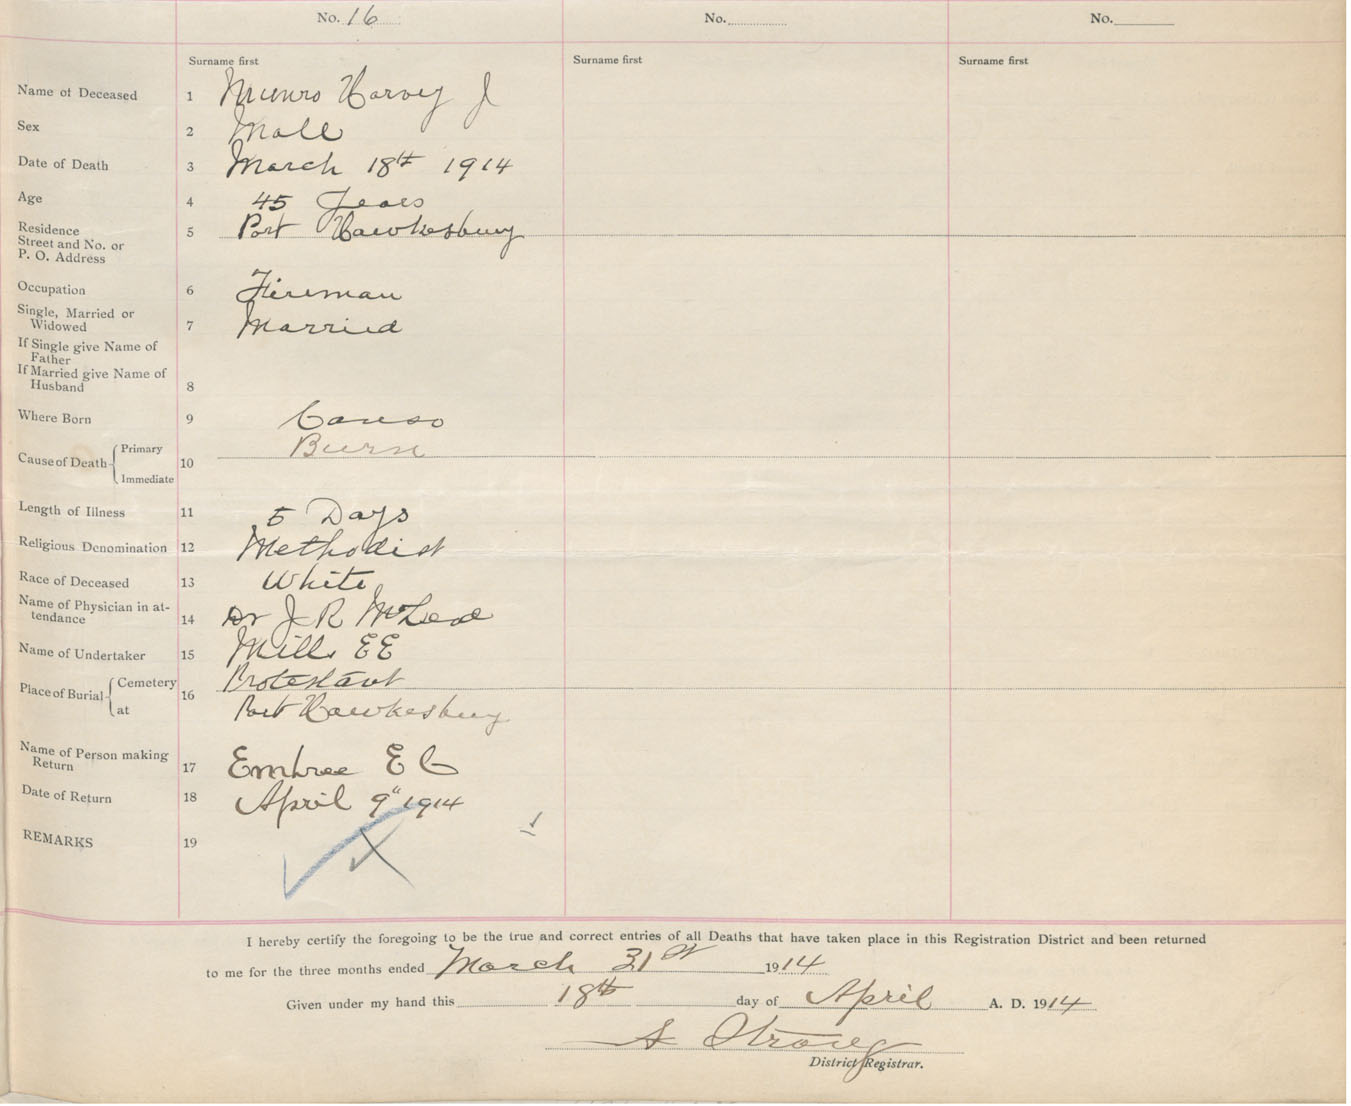 No. 16 No. No.
Surname first Surname first Surname first
Name of Deceased 1 Munro Harvey J
Sex 2 Male
Date of Death 3 March 18th 1914
Age 4 45 Years
Residence
Street and No. or
P. O. Address 5 Port Hawkesbury
Occupation 6 Fireman
Single, Married or
Widowed 7 Married
If Single give Name of
Father
If Married give Name of
Husband 8
Where Born 9 Canso
Cause of Death Primary 10 Burn
Immediate
Length of Illness 11 5 Days
Religious Denomination 12 Methodist
Race of Deceased 13 White
Name of Physician in at-
tendance 14 Dr J R McLeod
Name of Undertaker 15 Mills E E
Place of Burial Cemetery 16 Protestant
at Port Hawkesbury
Name of Person making
Return 17 Embree E C
Date of Return 18 April 9" 1914
REMARKS 19
1
I hereby certify the foregoing to be the true and correct entries of all Deaths that have taken place in this Registration District and been returned
to me for the three months ended March 31st 1914
Given under my hand this 18th day of April A. D. 1914
A Strong
District Registrar.